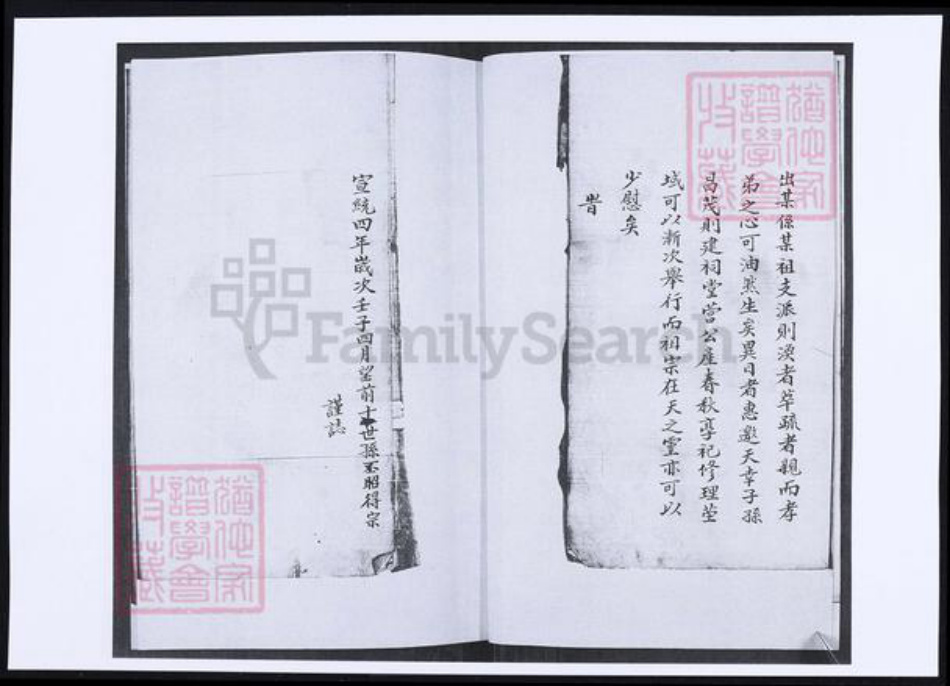 出某係某祖支派則渙者萃疏者親而孝
弟之心可油然生矣異日者惠邀天幸子孫
昌茂則建祠堂營公産春秋享祀修理塋
域可以漸次舉行而祖宗在天之靈亦可以
少慰矣
旹
宣統四年歲次壬子四月望前十世孫丕昭得宗
謹誌
猶他家
譜學會
收藏
猶他家
譜學會
收藏
FamilySearch